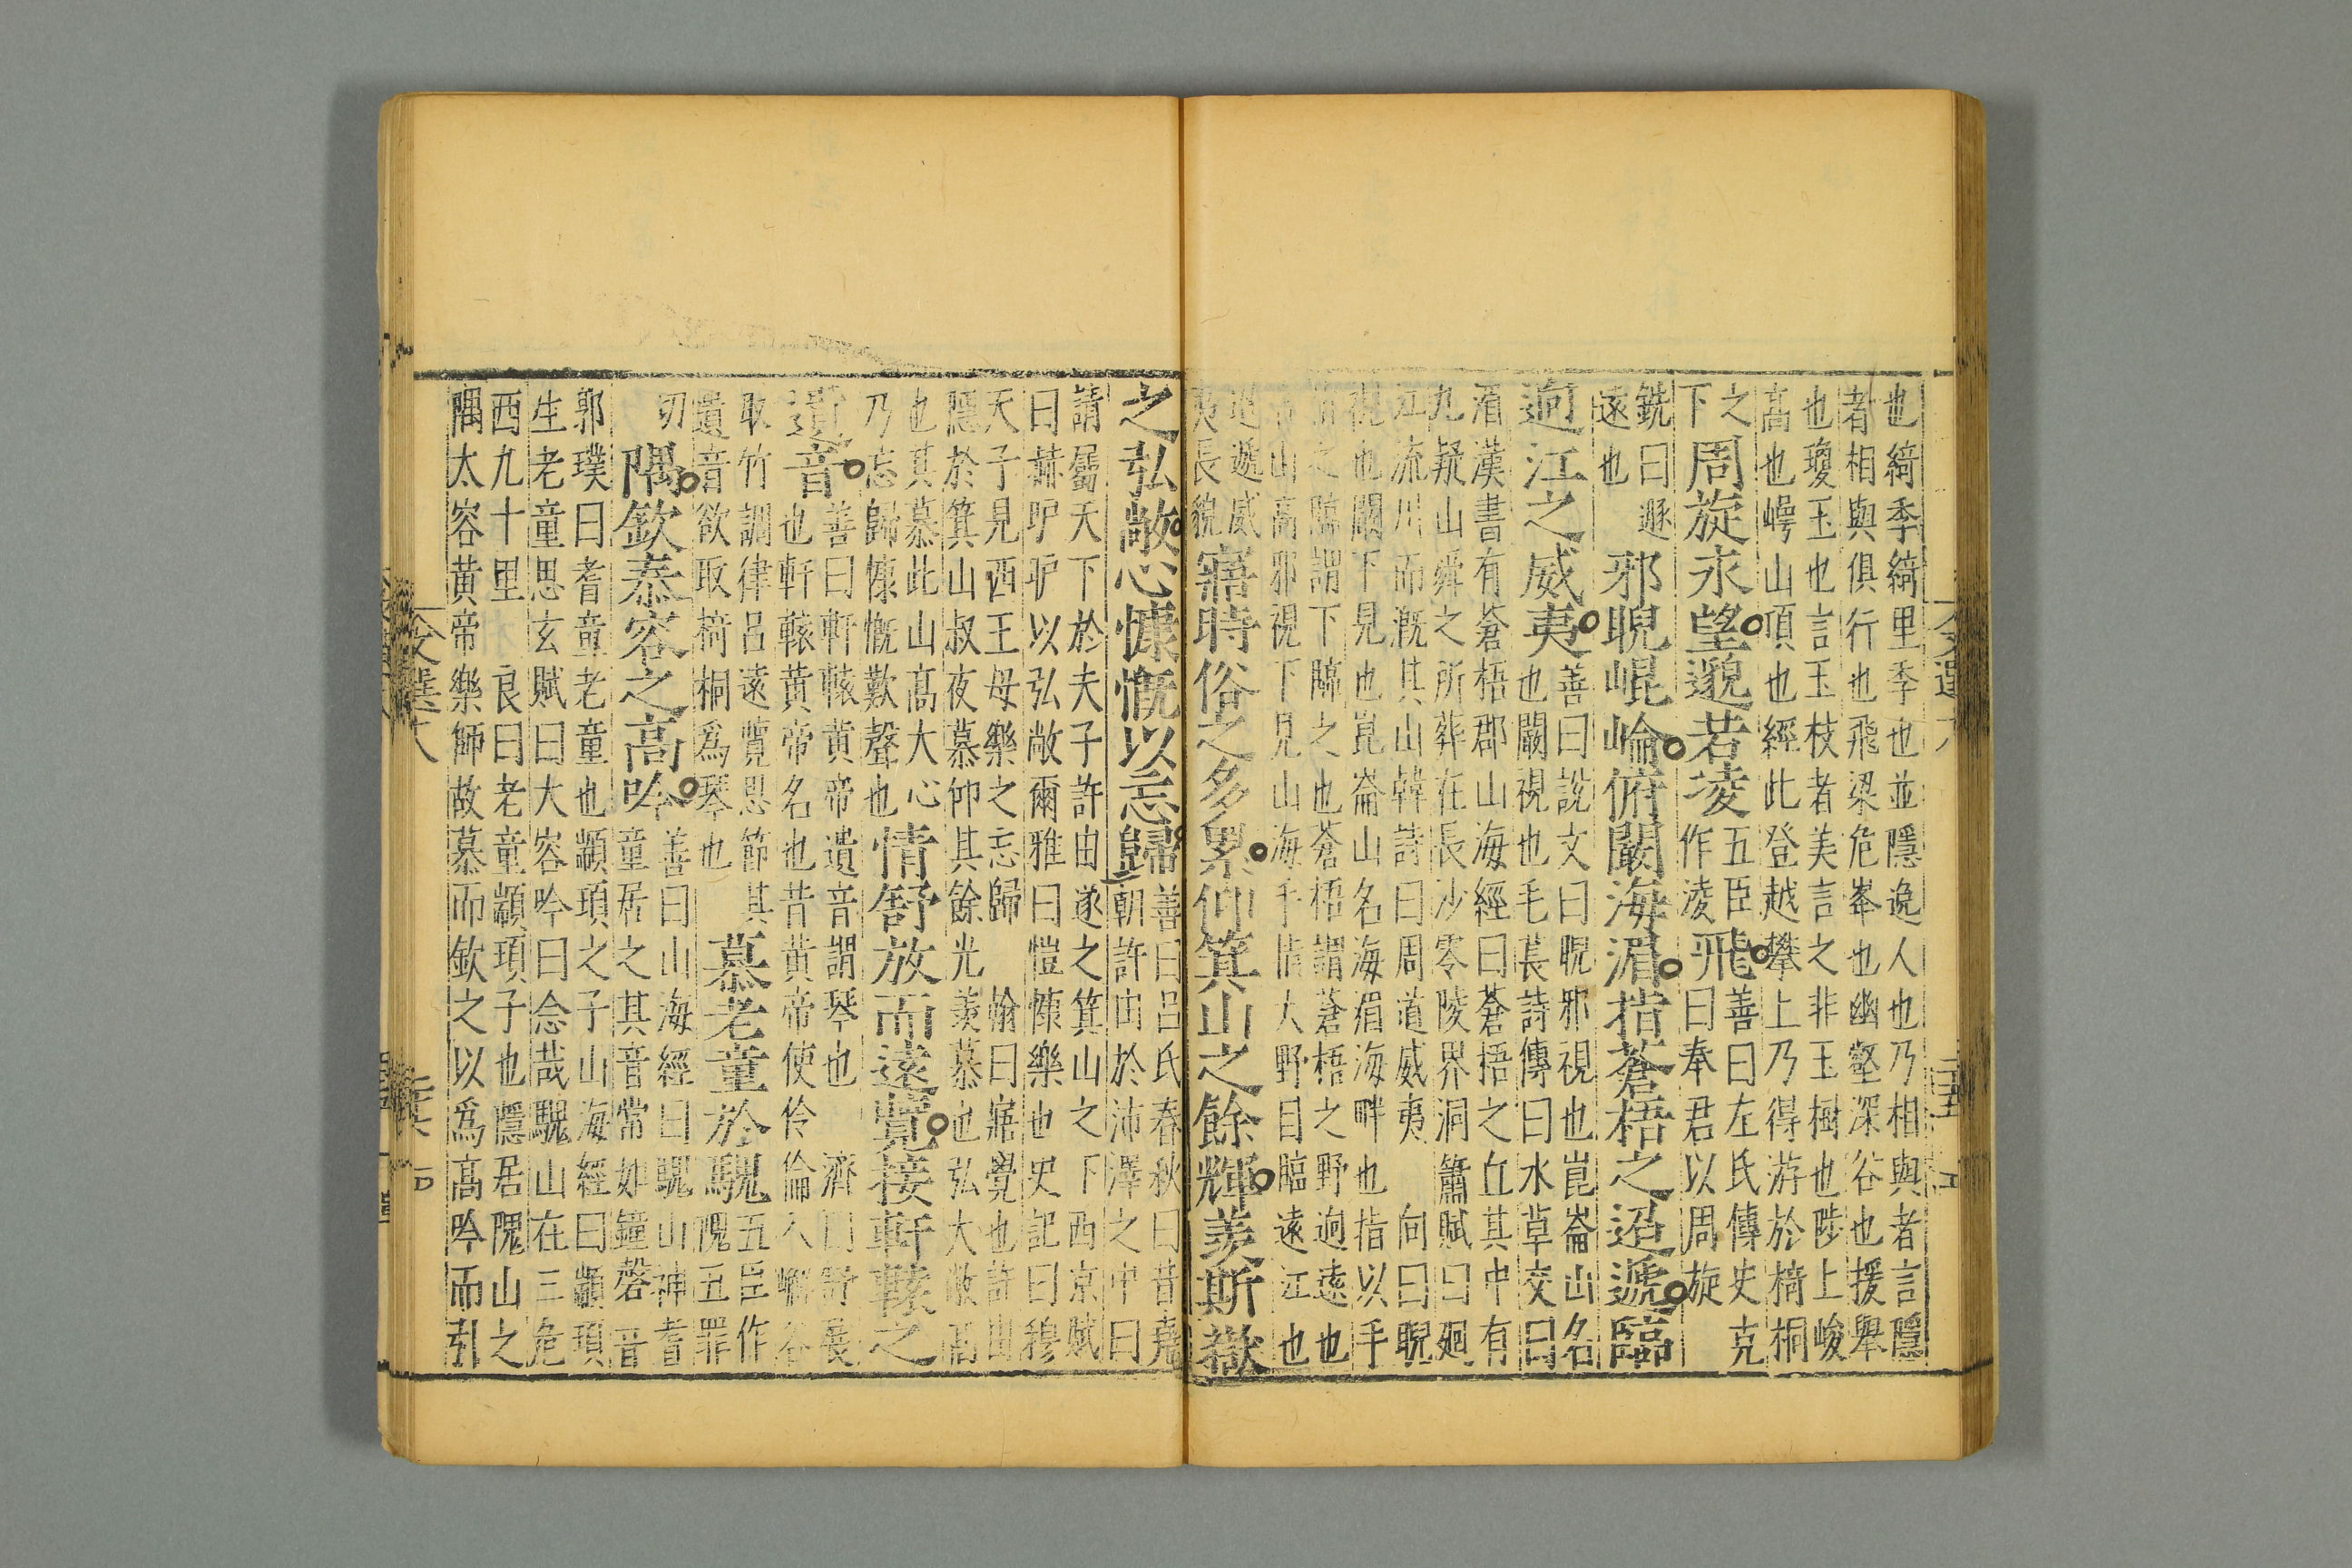 也綺季綺里季也並隱逸人也乃相與者言隱
者相與俱行也飛梁危峯也幽壑深谷也援舉
也瓊玉也言玉枝者美言之非玉樹也陟上峻
高也崿山頂也經此登越攀上乃得游於椅桐
之
下
周旋永望邈若凌
五臣
作淩
飛
善曰左氏傳史克
曰奉君以周旋
銑曰遯
遠也
邪睨崐崘俯闞海湄指蒼梧之迢遞臨
逈江之威夷
善曰說文曰睨邪視也崑崙山名
也闞視也毛萇詩傳曰水草交曰
湄漢書有蒼梧郡山海經曰蒼梧之丘其中有
九疑山舜之所葬在長沙零陵界洞簫賦曰廻
江流川而溉其山韓詩曰周道威夷 向曰睨
視也闞下見也崑崙山名海湄海畔也指以手
指之臨謂下臨之也蒼梧謂蒼梧之野逈遠也
山高邪視下見山海乎情大野目臨遠江也
迢遞威
夷長貌
寤時俗之多累仰箕山之餘輝羨斯嶽
之弘敞心慷慨以忘歸
善曰呂氏春秋曰昔堯
朝許由於沛澤之中曰
請屬天下於夫子許由遂之箕山之下西京賦
曰赫昈昈以弘敞爾雅曰愷慷樂也史記曰穆
天子見西王母樂之忘歸 翰曰寤覺也許由
隱於箕山叔夜慕仰其餘光羨慕也弘大敞高
也其慕此山高大心
乃忘歸慷慨歎聲也
情舒放而遠覽接軒轅之
遺音
善曰軒轅黃帝遺音謂琴也 濟曰舒長
也軒轅黃帝名也昔黃帝使伶倫入嶰谷
取竹調律呂遠覽思節其
遺音欲取椅桐爲琴也
慕老童於騩
五臣作
隗五罪
切
隅欽泰容之高吟
善曰山海經曰騩山神耆
童居之其音常如鐘磬音
郭璞曰耆童老童也顓頊之子山海經曰顓頊
生老童思玄賦曰大容吟曰念哉騩山在三危
西九十里 良曰老童顓頊子也隱居隗山之
隅太容黃帝樂師故慕而欽之以爲高吟而引